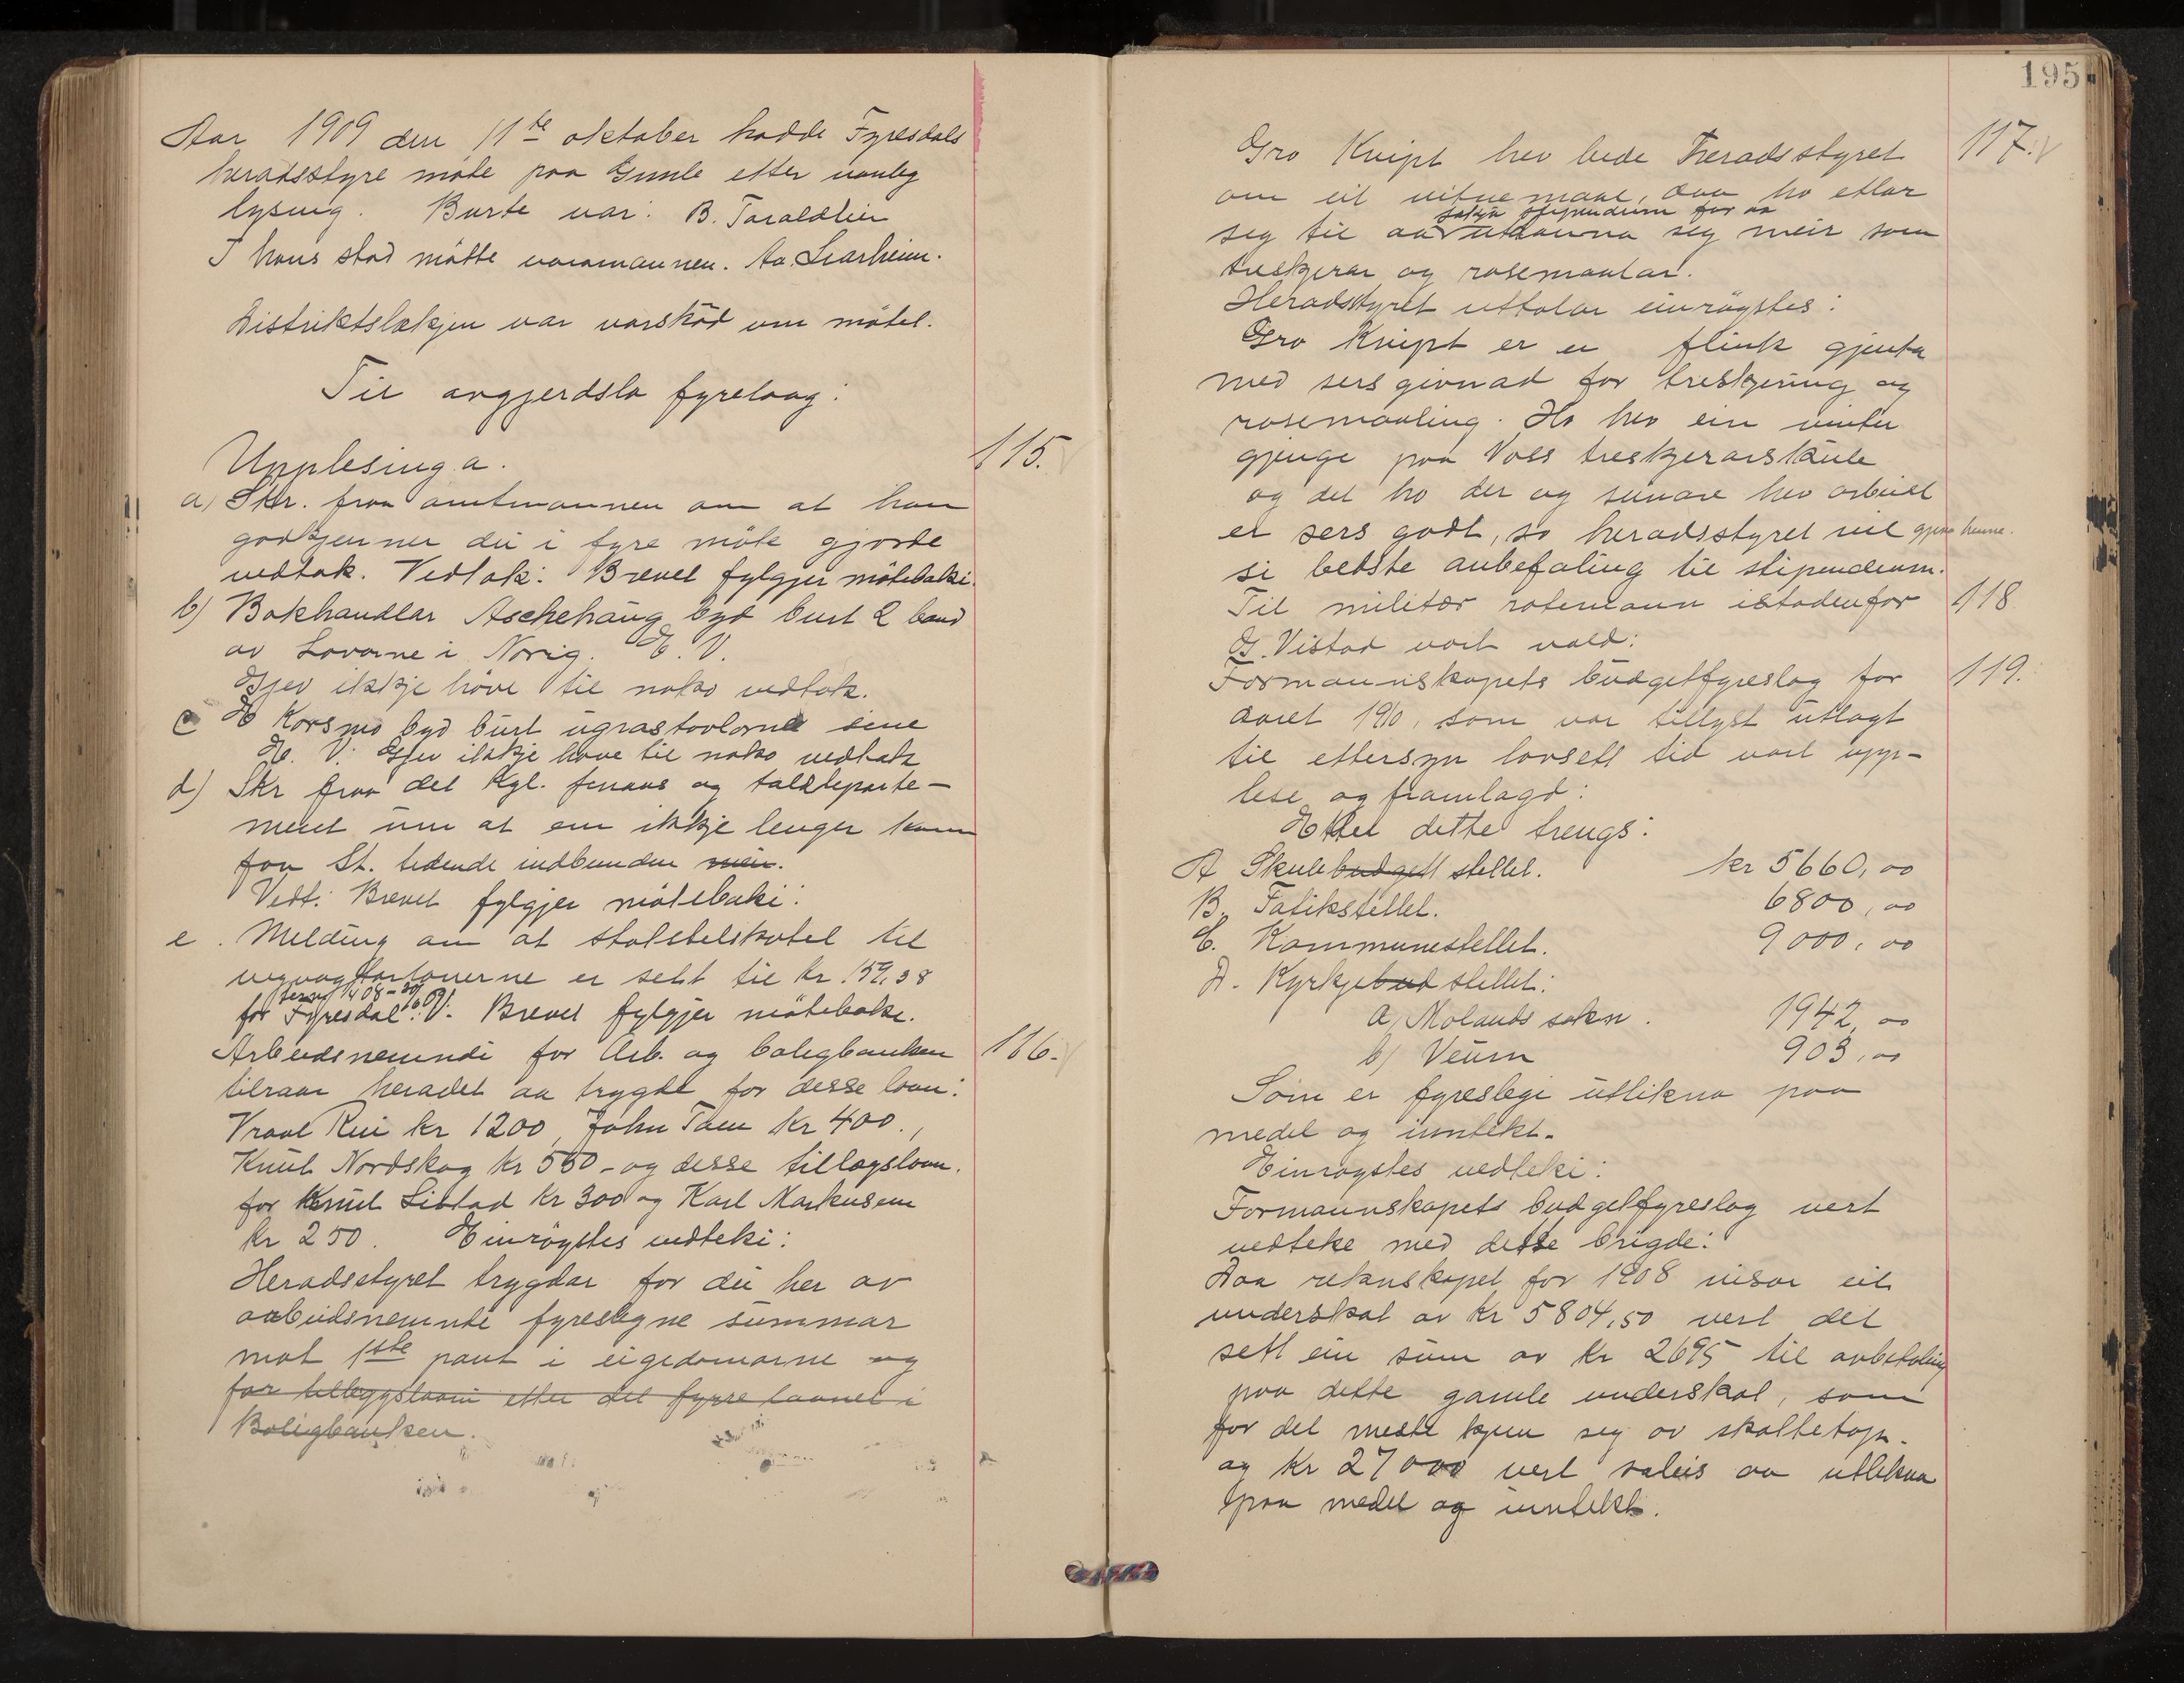 Aar 1909 den 11te oktober hadde Fyresdals
heradsstyre møte paa Gimle etter vanleg
lysing. Burte var: B. Taraldlien
I hans stad møtte varamannen. Aa. Liarheim.
Distriktslækjen var varskød um møtet.
Til avgjerdsla fyrelaag:
Upplesinga. 115.
a) Skr. fraa amtmannen om at han
godkjenner dei i fyre møte gjorde
vedtak. Vedtak: Brevet fylgjer møteboki.
b) Bokhandlar Aschehaug byd burt 2 band
av Lovarne i Norig. E. V.
Gjev ikkje høve til noko vedtak.
c E Korsmo byd burt ugrastavlorne sine
E. V. Gjev ikkje høve til noko vedtak
d) Skr fraa det Kgl. finans og tolldeparte-
ment um at ein ikkje lenger kann
faa St. tidende indbunden mein.
Vedt: Brevet fylgjer møteboki:
e. Melding om at statstilskotet til
vegvogtarlønerne er sett til kr. 159,38
term 1/4 08-30/6 09
for Fyresdal. V. Brevet fylgjer møteboki.
Arbeidsnemndi for Arb. og boligbanken 116.
tilraar heradet aa trygde for desse laan:
Vraal Rui kr 1200, John Tam kr 400.,
Knut Nordskog kr 550 - og desse tillagslaan.
for Knut Listad kr 300 og Karl Markusem
kr 250. Einrøystes vedteki:
Heradsstyret trygdar for dei her av
arbeidsnemnde fyreslegne summar
mot 1ste pant i eigedomarne og
for tilleggslaani etter det fyrre laanet i
Boligbanken.
195
Gro Kvipt hev bede Heradsstyret 117.
om eit vitnemaal, daa ho etlar
søkja stipendium for aa
seg til aa utdanna seg meir som
treskjerar og rosemaalar.
Heradsstyret uttalar einrøystes:
Gro Kvipt er ei flink gjenta
med sers givnad for treskjering og
rosemaaling. Ho hev ein vinter
gjenge paa Voss treskjerarskule
og det ho der og seinare hev arbeidt
er sers godt, so heradsstyret vil gjeva henne.
si bedste anbefaling til stipendium.
Til militær rotemann istadenfor 118.
G. Vistad vart vald:
Formannskapets budgetfyreslag for 119.
aaret 1910, som var tillyst utlagt
til ettersyn lovsett tid vart upp-
lese og framlagd:
Etter dette trengs:
A Skulebudgett stellet. kr 5660,00
B. Fatikstellet. 6800,00
C. Kommunestellet. 9000,00
D. Kyrkjebud stellet:
a) Molands sokn. 1942,00
b) Veum 903,00
Som er fyreslege utlikna paa
medel og inntekt.
Einrøystes vedteki:
Formannskapets budgetfyreslag vert
vedteke med dette brigde:
Daa rekneskapet for 1908 visar eit
underskot av kr 5804,50 vert det
sett ein sum av kr 2695 til avbetaling
paa dette gamle underskot, som
for det meste kjem seg av skattetap.
og kr 27000 vert soleis aa utlikna
paa medel og inntekt.